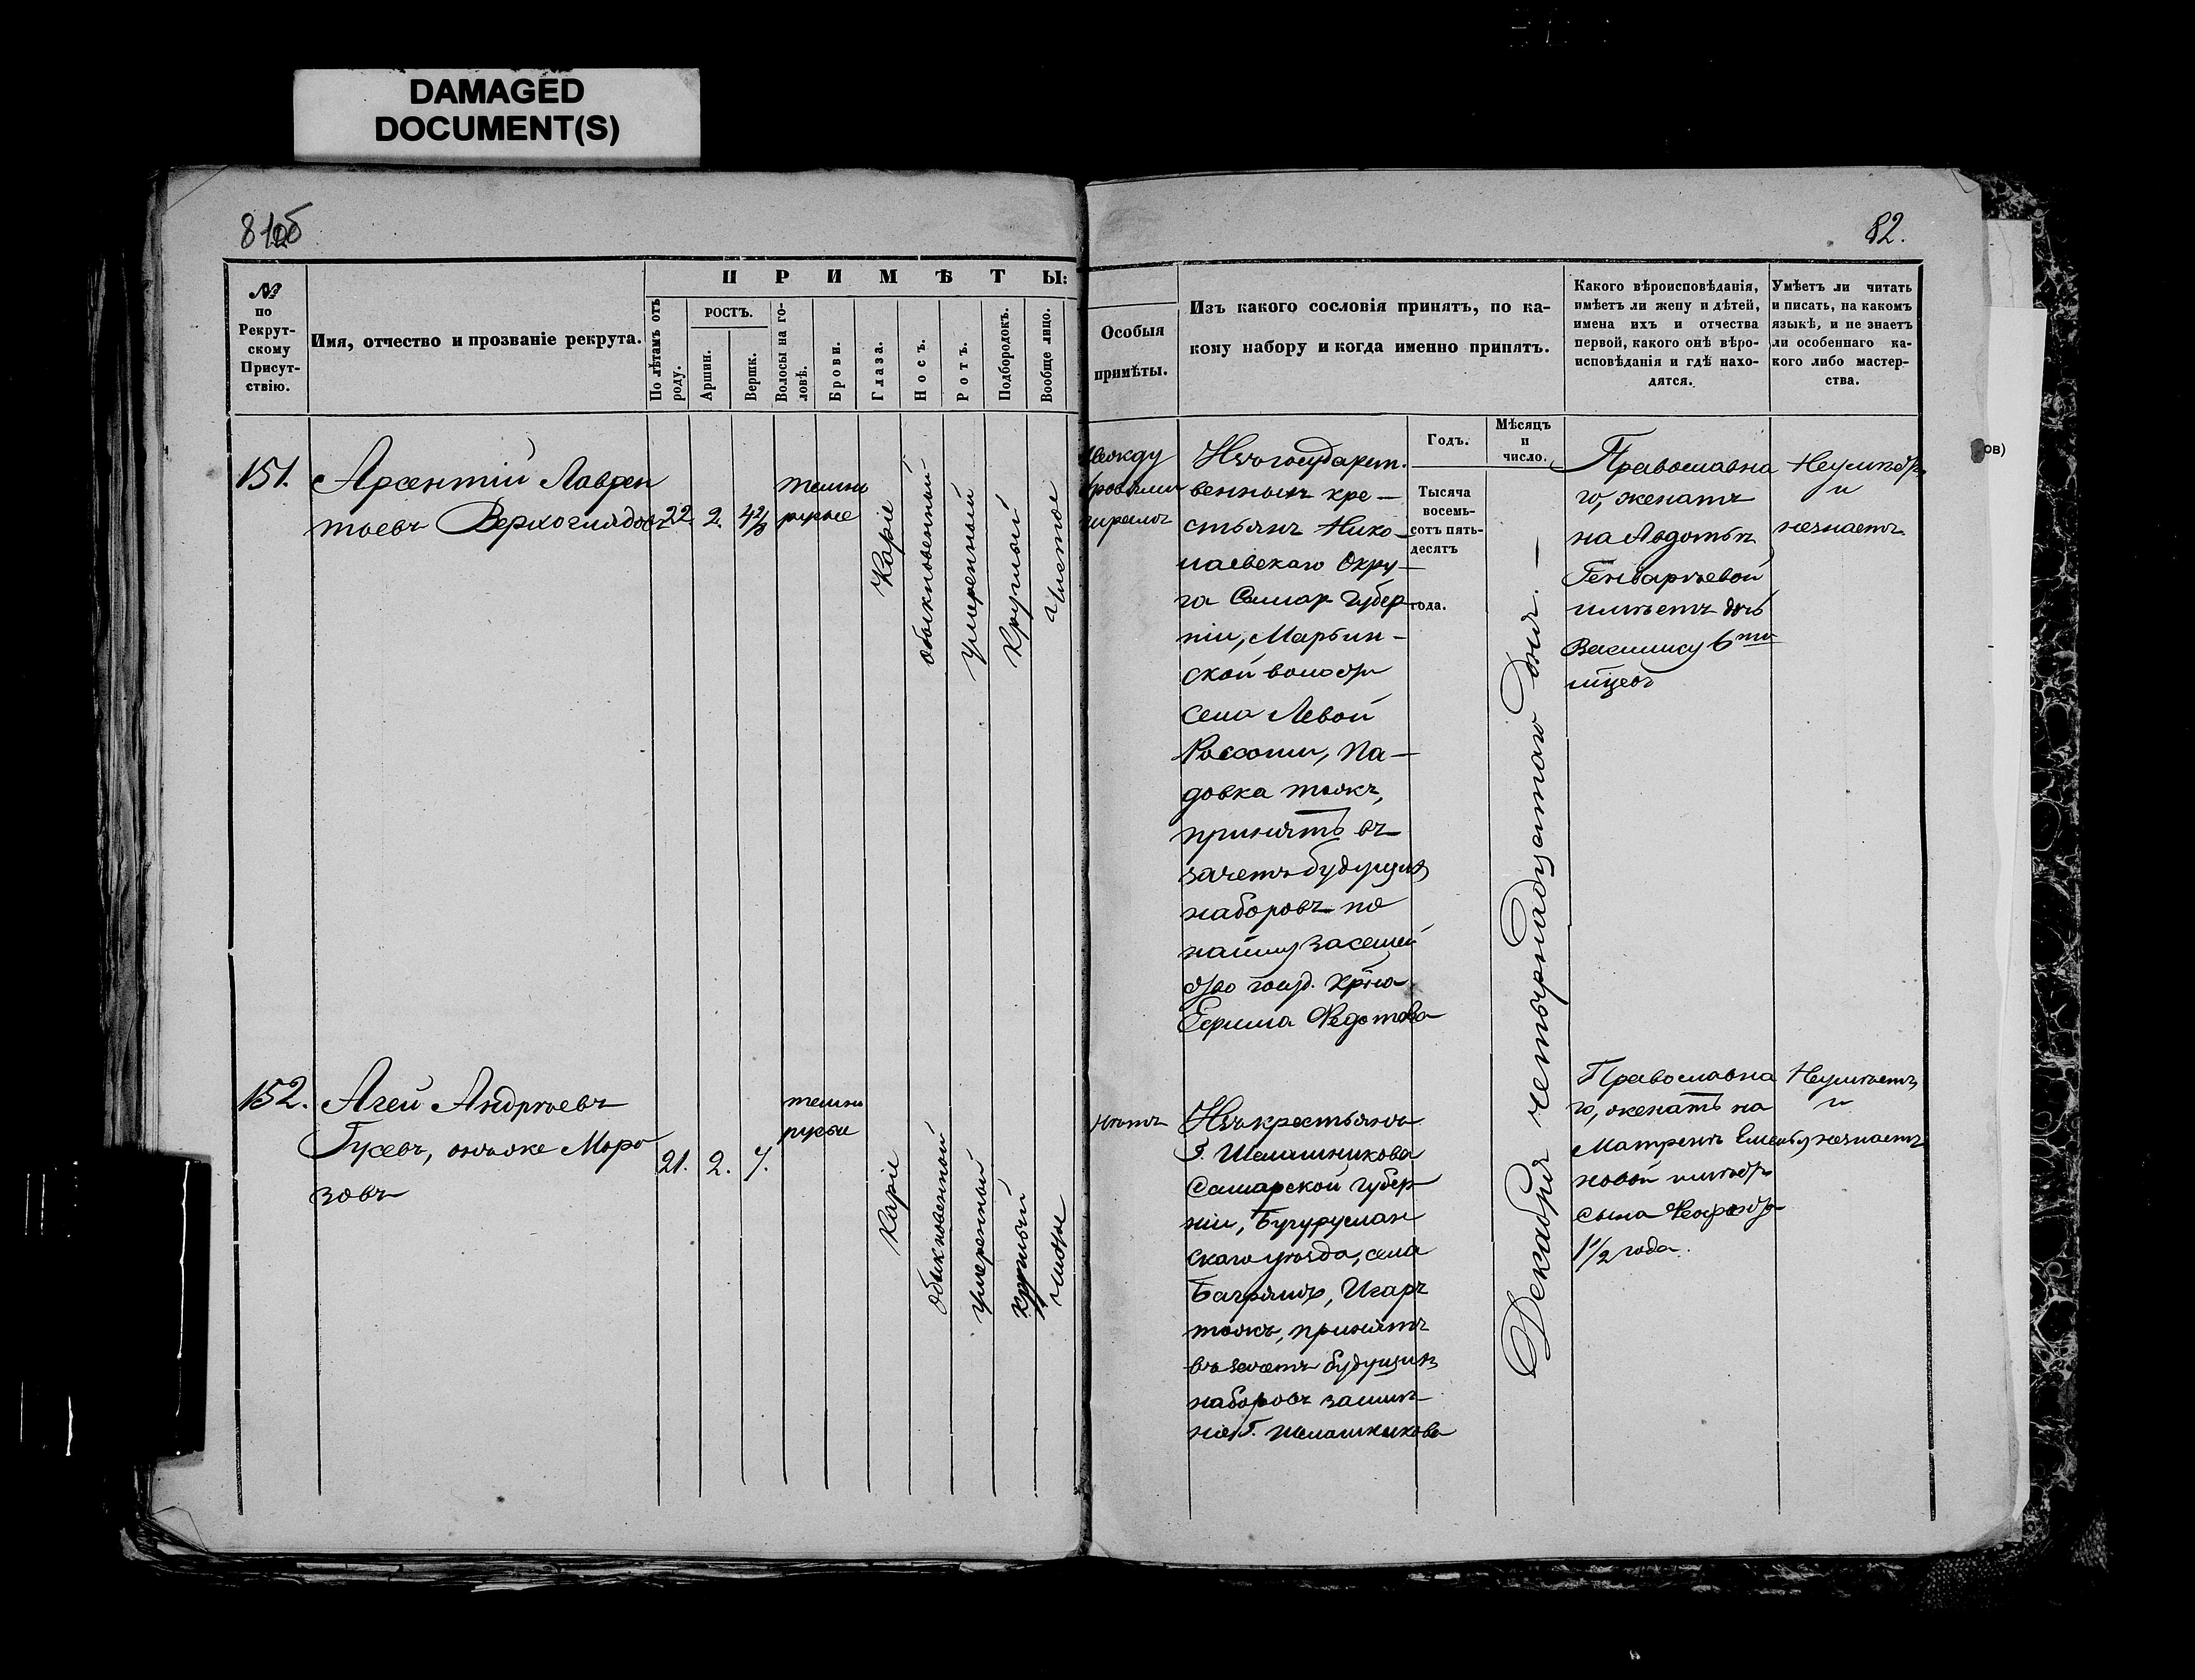 DAMAGED
DOCUMENT(S)
81об
82.
№
по
Рекрут-
скому
Присут-
ствію.
Имя, отчество и прозваніе рекрута.
П Р И М Ѣ Т Ы:
По лѣтамъ отъ
роду.
РОСТЪ.
Аршин.
Вершк.
Волосы на го-
ловѣ.
Брови.
Глаза.
Носъ.
Ротъ.
Подбородокъ.
Вообще лицо.
Особыя
примѣты.
Изъ какого сословія принятъ, по ка-
кому набору и когда именно принятъ.
Какого вѣроисповѣданія,
имѣетъ ли жену и дѣтей,
имена ихъ и отчества
первой, какого онѣ вѣро-
исповѣданія и гдѣ нахо-
дятся.
Умѣетъ ли читать
и писать, на какомъ
языкѣ, и не знаетъ
ли особеннаго ка-
кого либо мастер-
ства.
Годъ.
Мѣсяцъ
и
число.
Тысяча
восемь-
сотъ пять-
десятъ
года.
ов)
151.
Арсентій Лаврен
тьевъ Верхоглядовъ
22.
2.
4 2/8
темно
русые
Каріе
обыкновенный
умеренный
Круглый
Чистое
между
бровями
шрамъ
Изъ государст.
венныхъ кре-
стьянъ Нико-
лаевскаго Окру-
га Самар Губер-
ніи, Марьин-
ской волости
села Левой
Россоши, Па-
довка тожъ,
принятъ въ
зачетъ будущихъ
наборовъ по
найму за семей
ство госуд. кр-на
Ефима Федотова
Декабря четырнадцатаго дня.—
Православна
го, женатъ
на Авдотьѣ
Генварьевой
имѣетъ дочь
Василису 6ти
м-цевъ
Неумѣетъ
и
незнаетъ
152.
Агей Андрѣевъ
Гусевъ, онъ же Моро
зовъ
21.
2.
7.
темно
русы
Каріе
обыкновенный
умеренный
круглый
чистое
нѣтъ
Изъ крестьянъ
Г. Шелашникова
Самарской губер-
ніи, Бугуруслан
скаго уѣзда, села
тожъ, принятъ
въ зачетъ будущихъ
наборовъ за имѣ-
ніе Г. Шелашникова
Православна
го, женатъ на
Матренѣ Емелья
новой имѣетъ
сына
1 1/2 года.
Неумѣетъ
и
незнаетъ